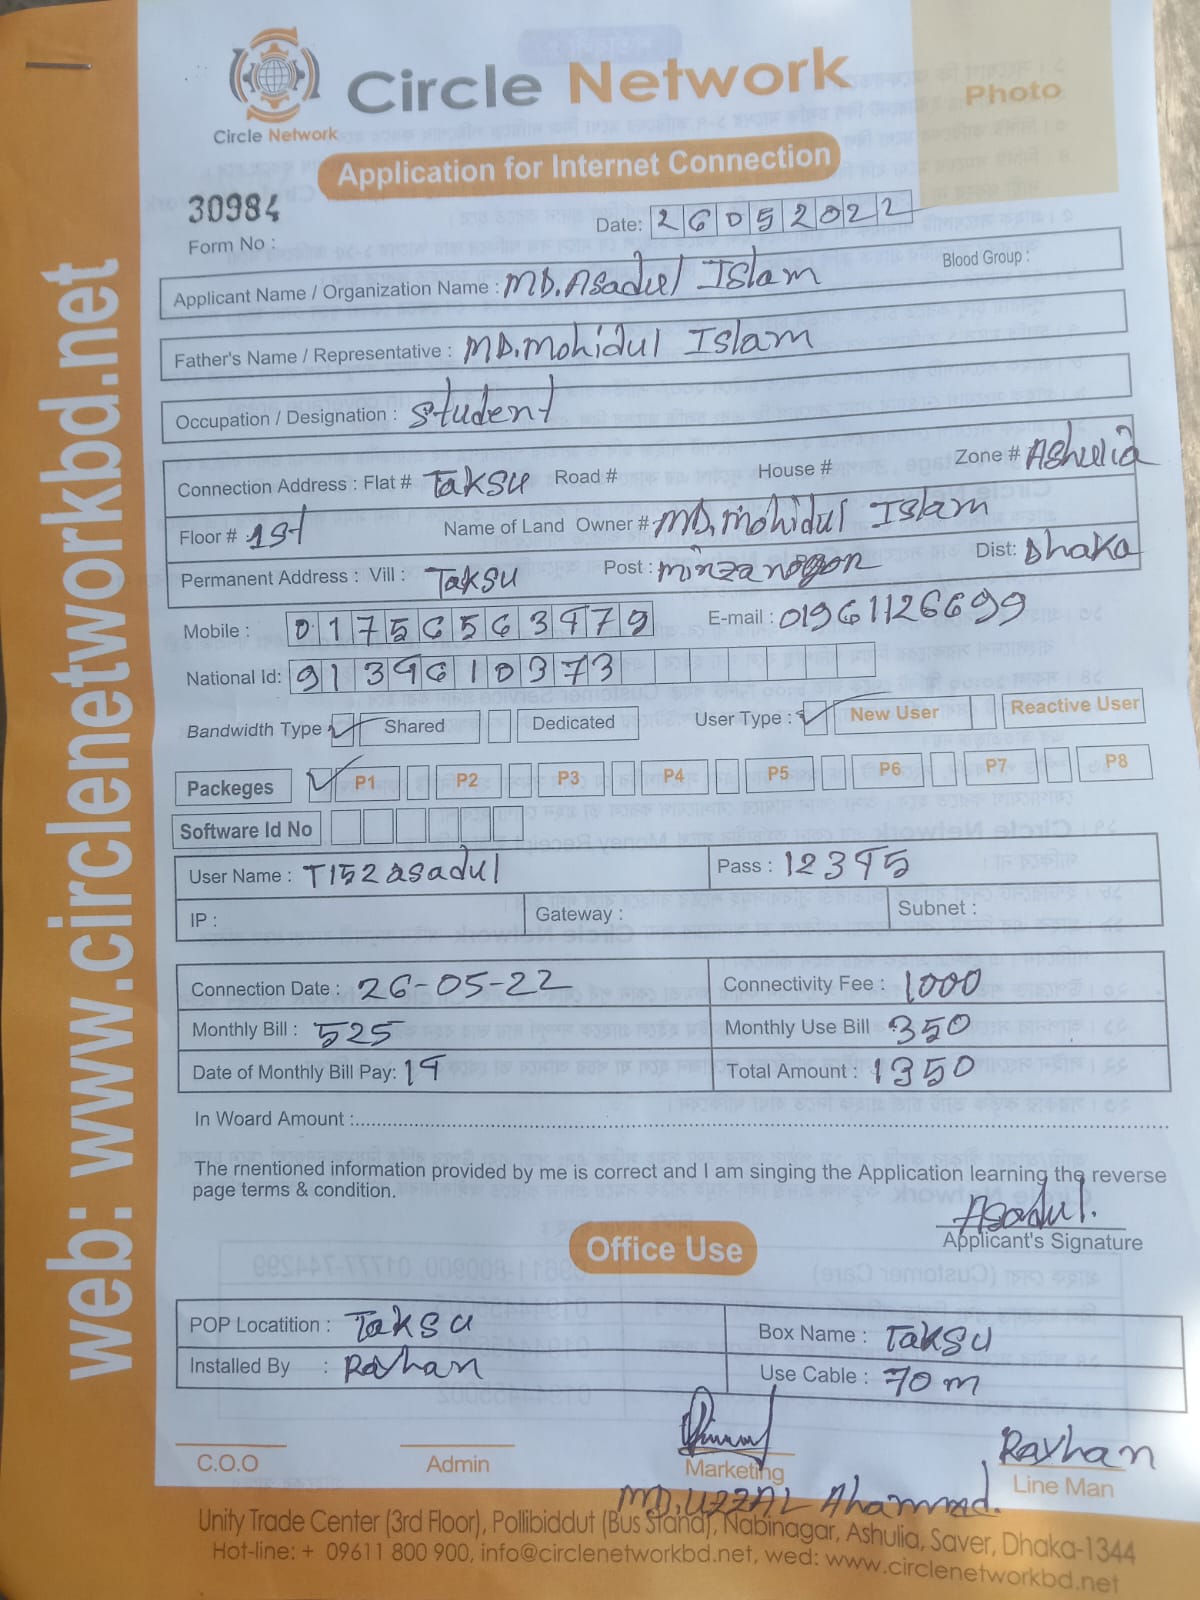 Circle Network
Circle Network
Photo
Application for Internet Connection
30984
Form No :
Date: 26052022
Applicant Name / Organization Name : MD.Asadul Islam Blood Group :
Father's Name / Representative : MD.Mohidul Islam
Occupation / Designation : Student
Connection Address : Flat # Taksu Road # House # Zone # Ashulia
Floor # 1st Name of Land Owner # MD.Mohidul Islam
Permanent Address : Vill : Taksu Post : Dist: Dhaka
Mobile : 01756563479 E-mail : 01961126699
National Id: 9134610373
Bandwidth Type Shared Dedicated User Type : New User Reactive User
Packeges P1 P2 P3 P4 P5 P6 P7 P8
Software Id No
User Name : T152asadul Pass : 12345
IP : Gateway : Subnet :
Connection Date : 26-05-22 Connectivity Fee : 1000
Monthly Bill : 525 Monthly Use Bill : 350
Date of Monthly Bill Pay: 14 Total Amount : 1350
In Woard Amount :
The mentioned information provided by me is correct and I am singing the Application learning the reverse
page terms & condition.
Asadul.
Applicant's Signature
Office Use
POP Locatition : Taksu Box Name : Taksu
Installed By : Rayhan Use Cable : 70m
Rayhan
C.O.O Admin Marketing Line Man
MD.UZZAL Ahammad.
Unity Trade Center (3rd Floor), Pollibiddut (Bus Stand), Nabinagar, Ashulia, Saver, Dhaka-1344
Hot-line: + 09611 800 900, info@circlenetworkbd.net, wed: www.circlenetworkbd.net
web: www.circlenetworkbd.net